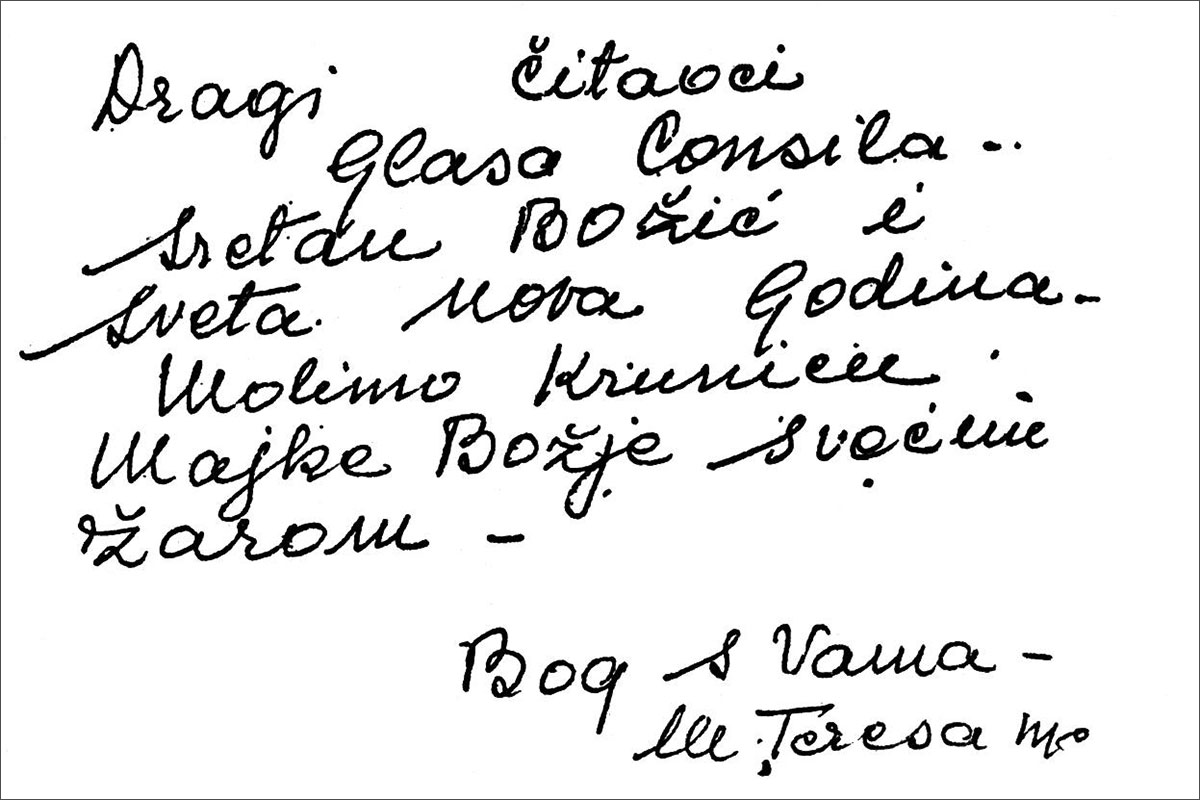 Dragi čitaoci
Glasa Consila -
Sretan Božić i
Sveta Nova Godina -
Molimo Krunicu
Majke Božje svećim
žarom -
Bog s Vama -
M. Teresa mc